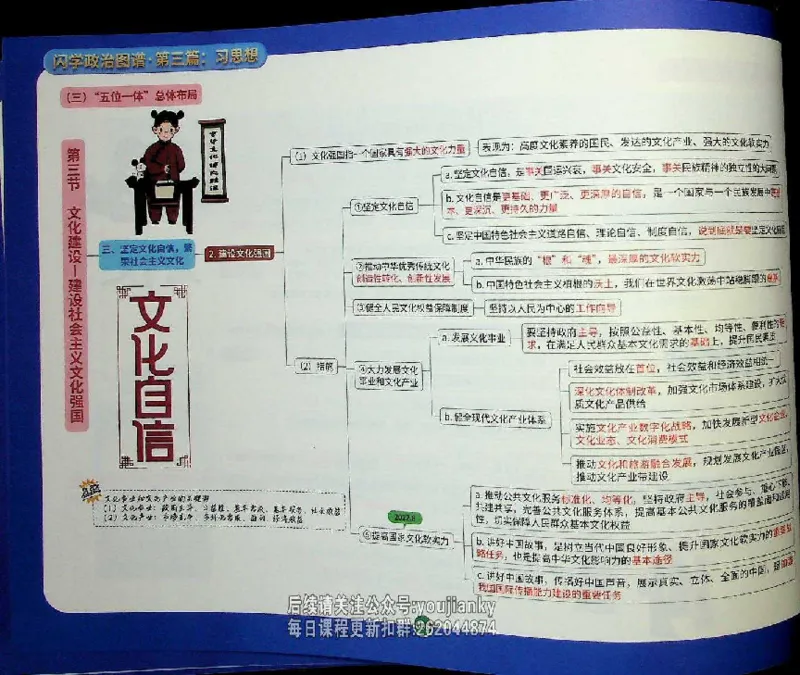 闪学政治图谱·第三篇：习思想
（三）“五位一体”总体布局
第三节 文化建设—建设社会主义文化强国
三、坚定文化自信，繁
荣社会主义文化
文化自信
2. 建设文化强国
（1）文化强国指一个国家具有强大的文化力量
表现为：高度文化素养的国民、发达的文化产业、强大的文化软实力
（2）措施
①坚定文化自信
a. 坚定文化自信，是事关国运兴衰，事关文化安全，事关民族精神的独立性的大问题
b. 文化自信是更基础、更广泛、更深厚的自信，是一个国家与一个民族发展中更基
本、更深沉、更持久的力量
c. 坚定中国特色社会主义道路自信、理论自信、制度自信，说到底就是要坚定文化自信
②推动中华优秀传统文化
创造性转化、创新性发展
a. 中华民族的“根”和“魂”，最深厚的文化软实力
b. 中国特色社会主义植根的沃土，我们在世界文化激荡中站稳脚跟的
③健全人民文化权益保障制度
坚持以人民为中心的工作向导
④大力发展文化
事业和文化产业
a. 发展文化事业
要坚持政府主导，按照公益性、基本性、均等性、便利性的要
求，在满足人民群众基本文化需求的基础上，提升国民素质
b. 健全现代文化产业体系
社会效益放在首位，社会效益和经济效益相统一
深化文化体制改革，加强文化市场体系建设，扩大优
质文化产品供给
实施文化产业数字化战略，加快发展新型文化企业、
文化业态、文化消费模式
推动文化和旅游融合发展，规划发展文化产业
推动文化产业带建设
2022.8
⑤提高国家文化软实力
a. 推动公共文化服务标准化、均等化，坚持政府主导，社会参与，重心下移，
共建共享，完善公共文化服务体系，提高基本公共文化服务的覆盖面和适用
性，切实保障人民群众基本文化权益
b. 讲好中国故事，是树立当代中国良好形象、提升国家文化软实力的重要战
略任务，也是提高中华文化影响力的基本途径
c. 讲好中国故事，传播好中国声音，展示真实、立体、全面的中国，是加强
我国国际传播能力建设的重要任务
（1）文化事业：政府主导、公益性、基本需求、基本服务、社会效益
（2）文化产业：市场主导、多样化需求、盈利、经济效益
后续请关注公众号:youjianky
每日课程更新扣群:962044874